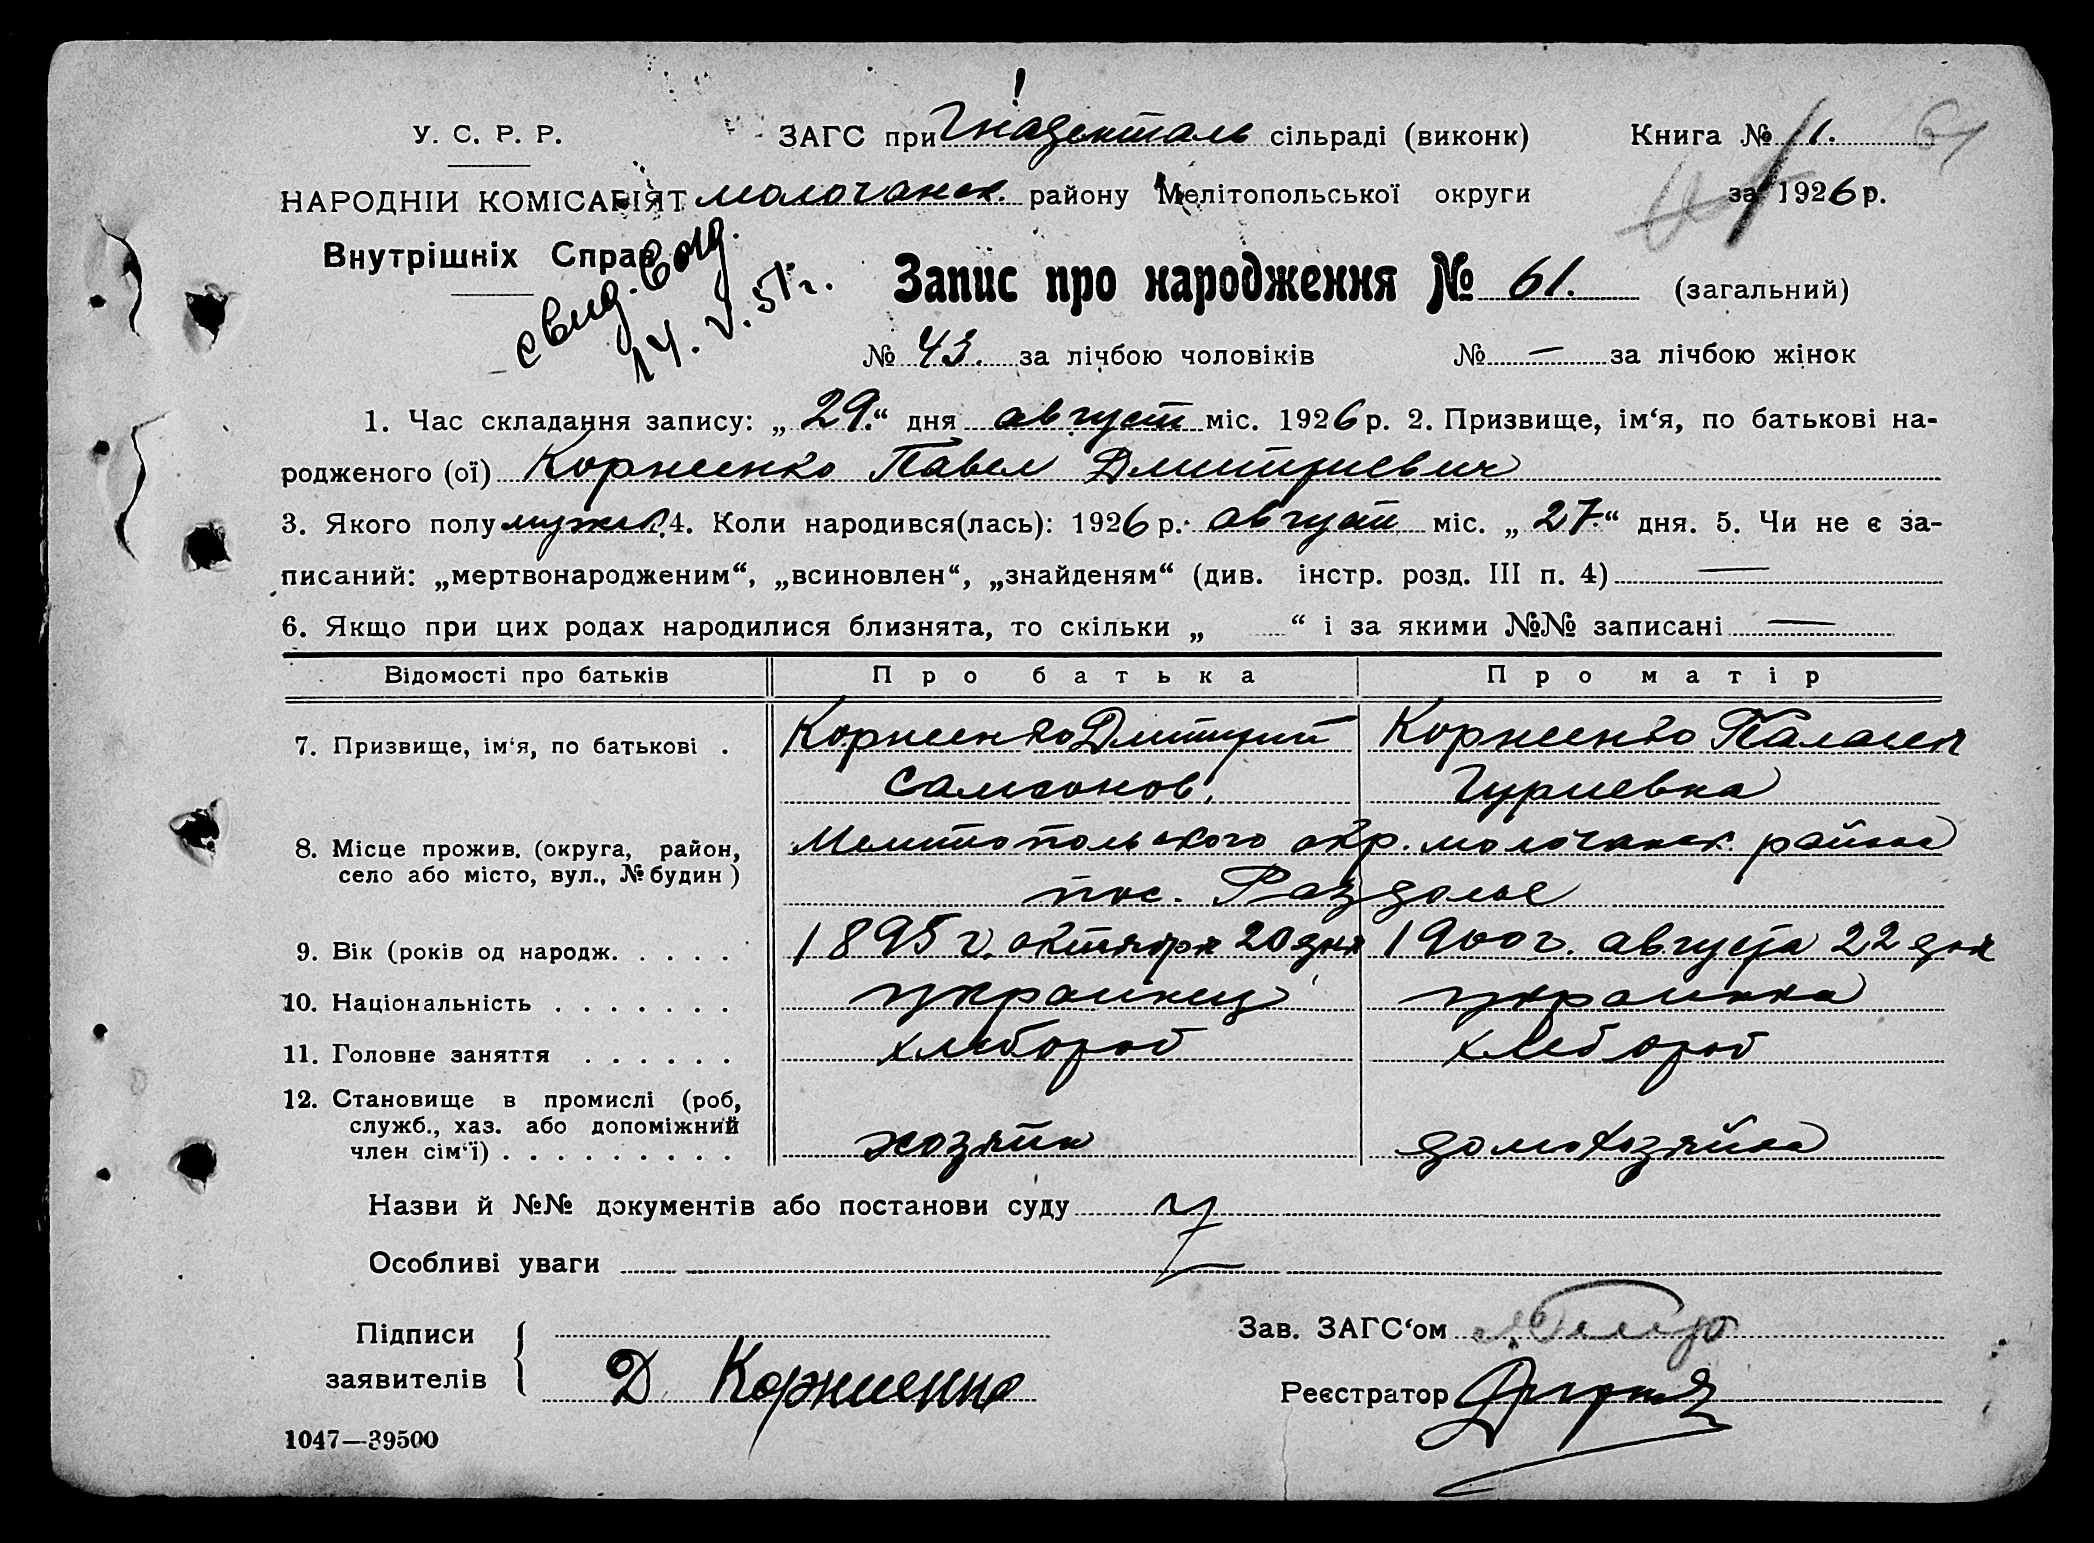 У. С. Р. Р.
ЗАГС при Гнаденталь сільраді (виконк)
Книга № 1.
НАРОДНІЙ КОМІСАРІЯТ
Молочанск. району Мелітопольської округи
за 1926 р.
Внутрішніх Справ
свид. выд.
14. V. 51 г.
Запис про народження № 61. (загальний)
№ 43. за лічбою чоловіків № — за лічбою жінок
1. Час складання запису: „ 29.“ дня август міс. 1926 р. 2. Призвище, ім‘я, по батькові на-
родженого (ої) Корниенко Павел Дмитриевич
3. Якого полу мужск. 4. Коли народився(лась): 1926 р. август міс. „ 27.“ дня. 5. Чи не є за-
писаний: „мертвонародженим“, „всиновлен“, „знайденям“ (див. інстр. розд. III п. 4) —
6. Якщо при цих родах народилися близнята, то скільки „ “ і за якими №№ записані —
Відомості про батьків Про батька Про матір
7. Призвище, ім‘я, по батькові . Корниенко Дмитрий Корниенко Палагея
Самсонов. Гуриевна
8. Місце прожив. (округа, район, село або місто, вул., № будин) Мелитопольского окр. Молочанск. района
пос. Раздолье
9. Вік (років од народж. . . . . 1895 г. октября 20 дня 1900 г. августа 22 дня
10. Національність . . . . . . . украинец украинка
11. Головне заняття . . . . . . хлебороб хлебороб
12. Становище в промислі (роб, служб., хаз. або допоміжний член сім‘ї) . . . . . . . . . хозяин домохозяйка
Назви й №№ документів або постанови суду
Особливі уваги
Підписи заявителів
Д Корниенко
Зав. ЗАГС‘ом
Реєстратор
1047—39500